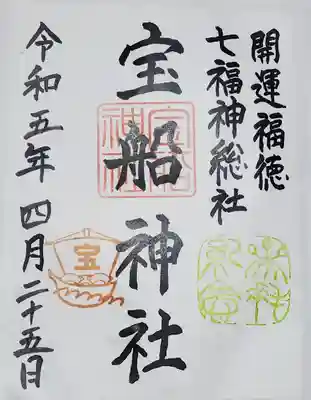 開運福徳
七福神総社
宝船神社
宝
令和五年 四月二十五日